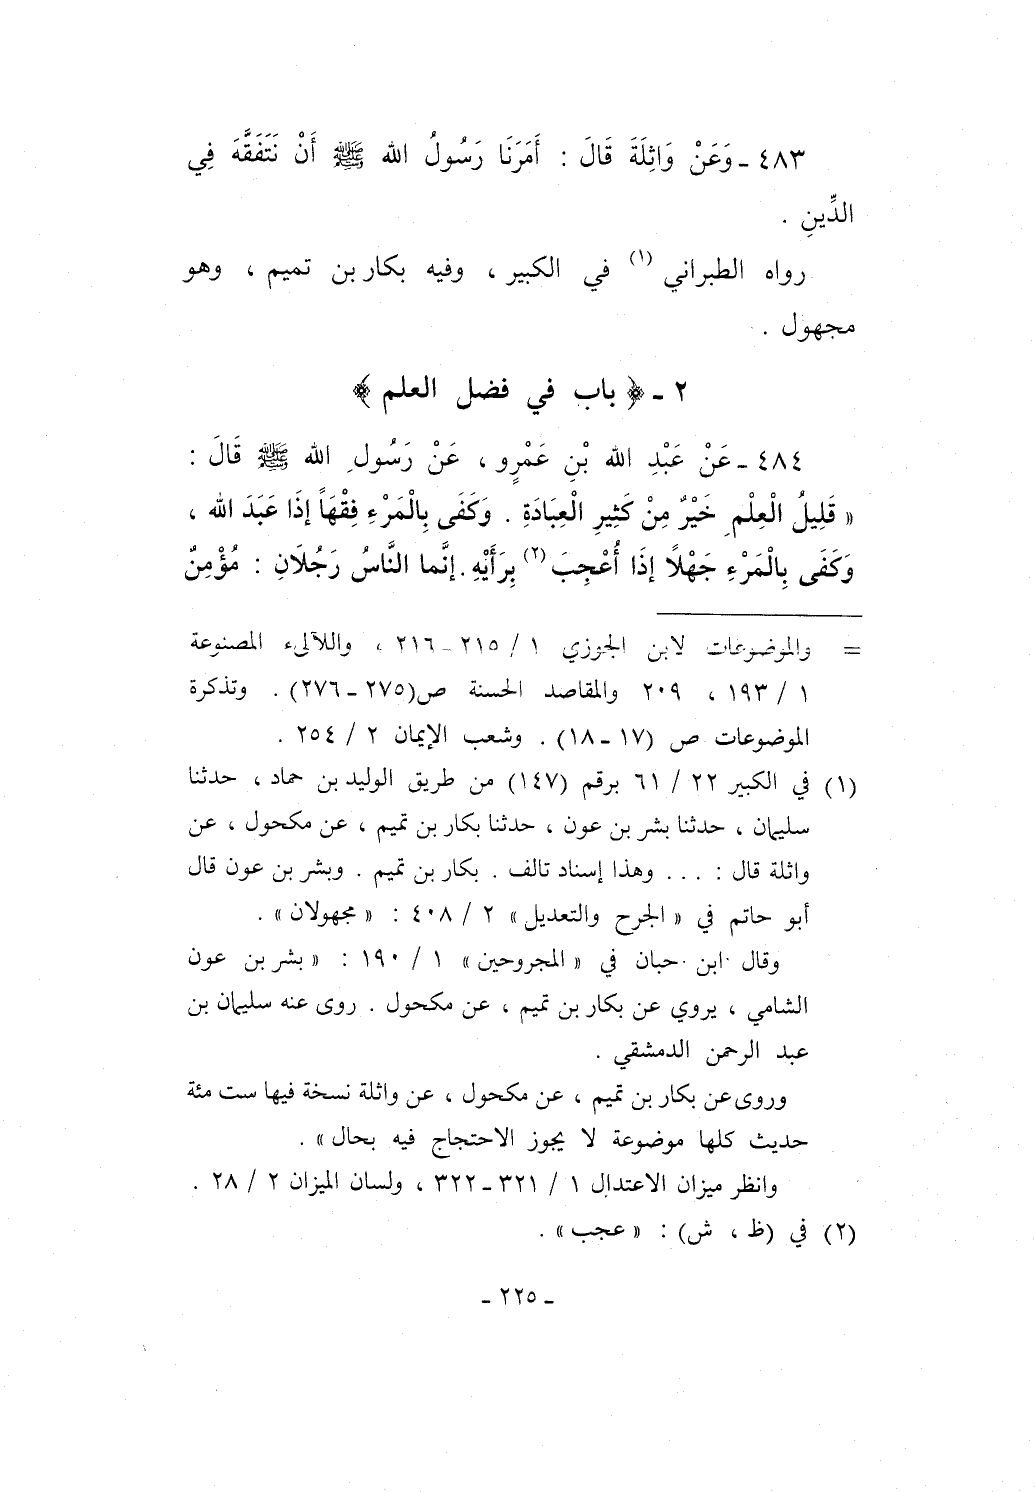 ٤٨٣ ـ وَعَنْ وَاثِلَةَ قَالَ : أَمَرَنَا رَسُولُ الله ﷺ أَنْ نَتَفَقَّهَ فِي
الدِّينِ .
رواه الطبراني (١) في الكبير ، وفيه بكار بن تميم ، وهو
مجهول .
٢ ـ ﴿ باب في فضل العلم ﴾
٤٨٤ ـ عَنْ عَبْدِ الله بْنِ عَمْرٍو ، عَنْ رَسُولِ الله ﷺ قَالَ :
« قَلِيلُ الْعِلْمِ خَيْرٌ مِنْ كَثِيرِ الْعِبَادَةِ . وَكَفَى بِالْمَرْءِ فِقْهَاً إِذَا عَبَدَ الله ،
وَكَفَى بِالْمَرْءِ جَهْلًا إِذَا أُعْجِبَ (٢) بِرَأْيِهِ . إِنَّما النَّاسُ رَجُلَانِ : مُؤْمِنٌ
= والموضوعات لابن الجوزي ١ / ٢١٥ ـ ٢١٦ ، واللآلىء المصنوعة
١ / ١٩٣ ، ٢٠٩ والمقاصد الحسنة ص(٢٧٥ ـ ٢٧٦) . وتذكرة
الموضوعات ص (١٧ ـ ١٨) . وشعب الإيمان ٢ / ٢٥٤ .
(١) في الكبير ٢٢ / ٦١ برقم (١٤٧) من طريق الوليد بن حماد ، حدثنا
سليمان ، حدثنا بشر بن عون ، حدثنا بكار بن تميم ، عن مكحول ، عن
واثلة قال : . . . وهذا إسناد تالف . بكار بن تميم . وبشر بن عون قال
أبو حاتم في « الجرح والتعديل » ٢ / ٤٠٨ : « مجهولان » .
وقال ابن حبان في « المجروحين » ١ / ١٩٠ : « بشر بن عون
الشامي ، يروي عن بكار بن تميم ، عن مكحول . روى عنه سليمان بن
عبد الرحمن الدمشقي .
وروى عن بكار بن تميم ، عن مكحول ، عن واثلة نسخة فيها ست مئة
حديث كلها موضوعة لا يجوز الاحتجاج فيه بحال » .
وانظر ميزان الاعتدال ١ / ٣٢١ ـ ٣٢٢ ، ولسان الميزان ٢ / ٢٨ .
(٢) في (ظ ، ش) : « عجب » .
ـ ٢٢٥ ـ